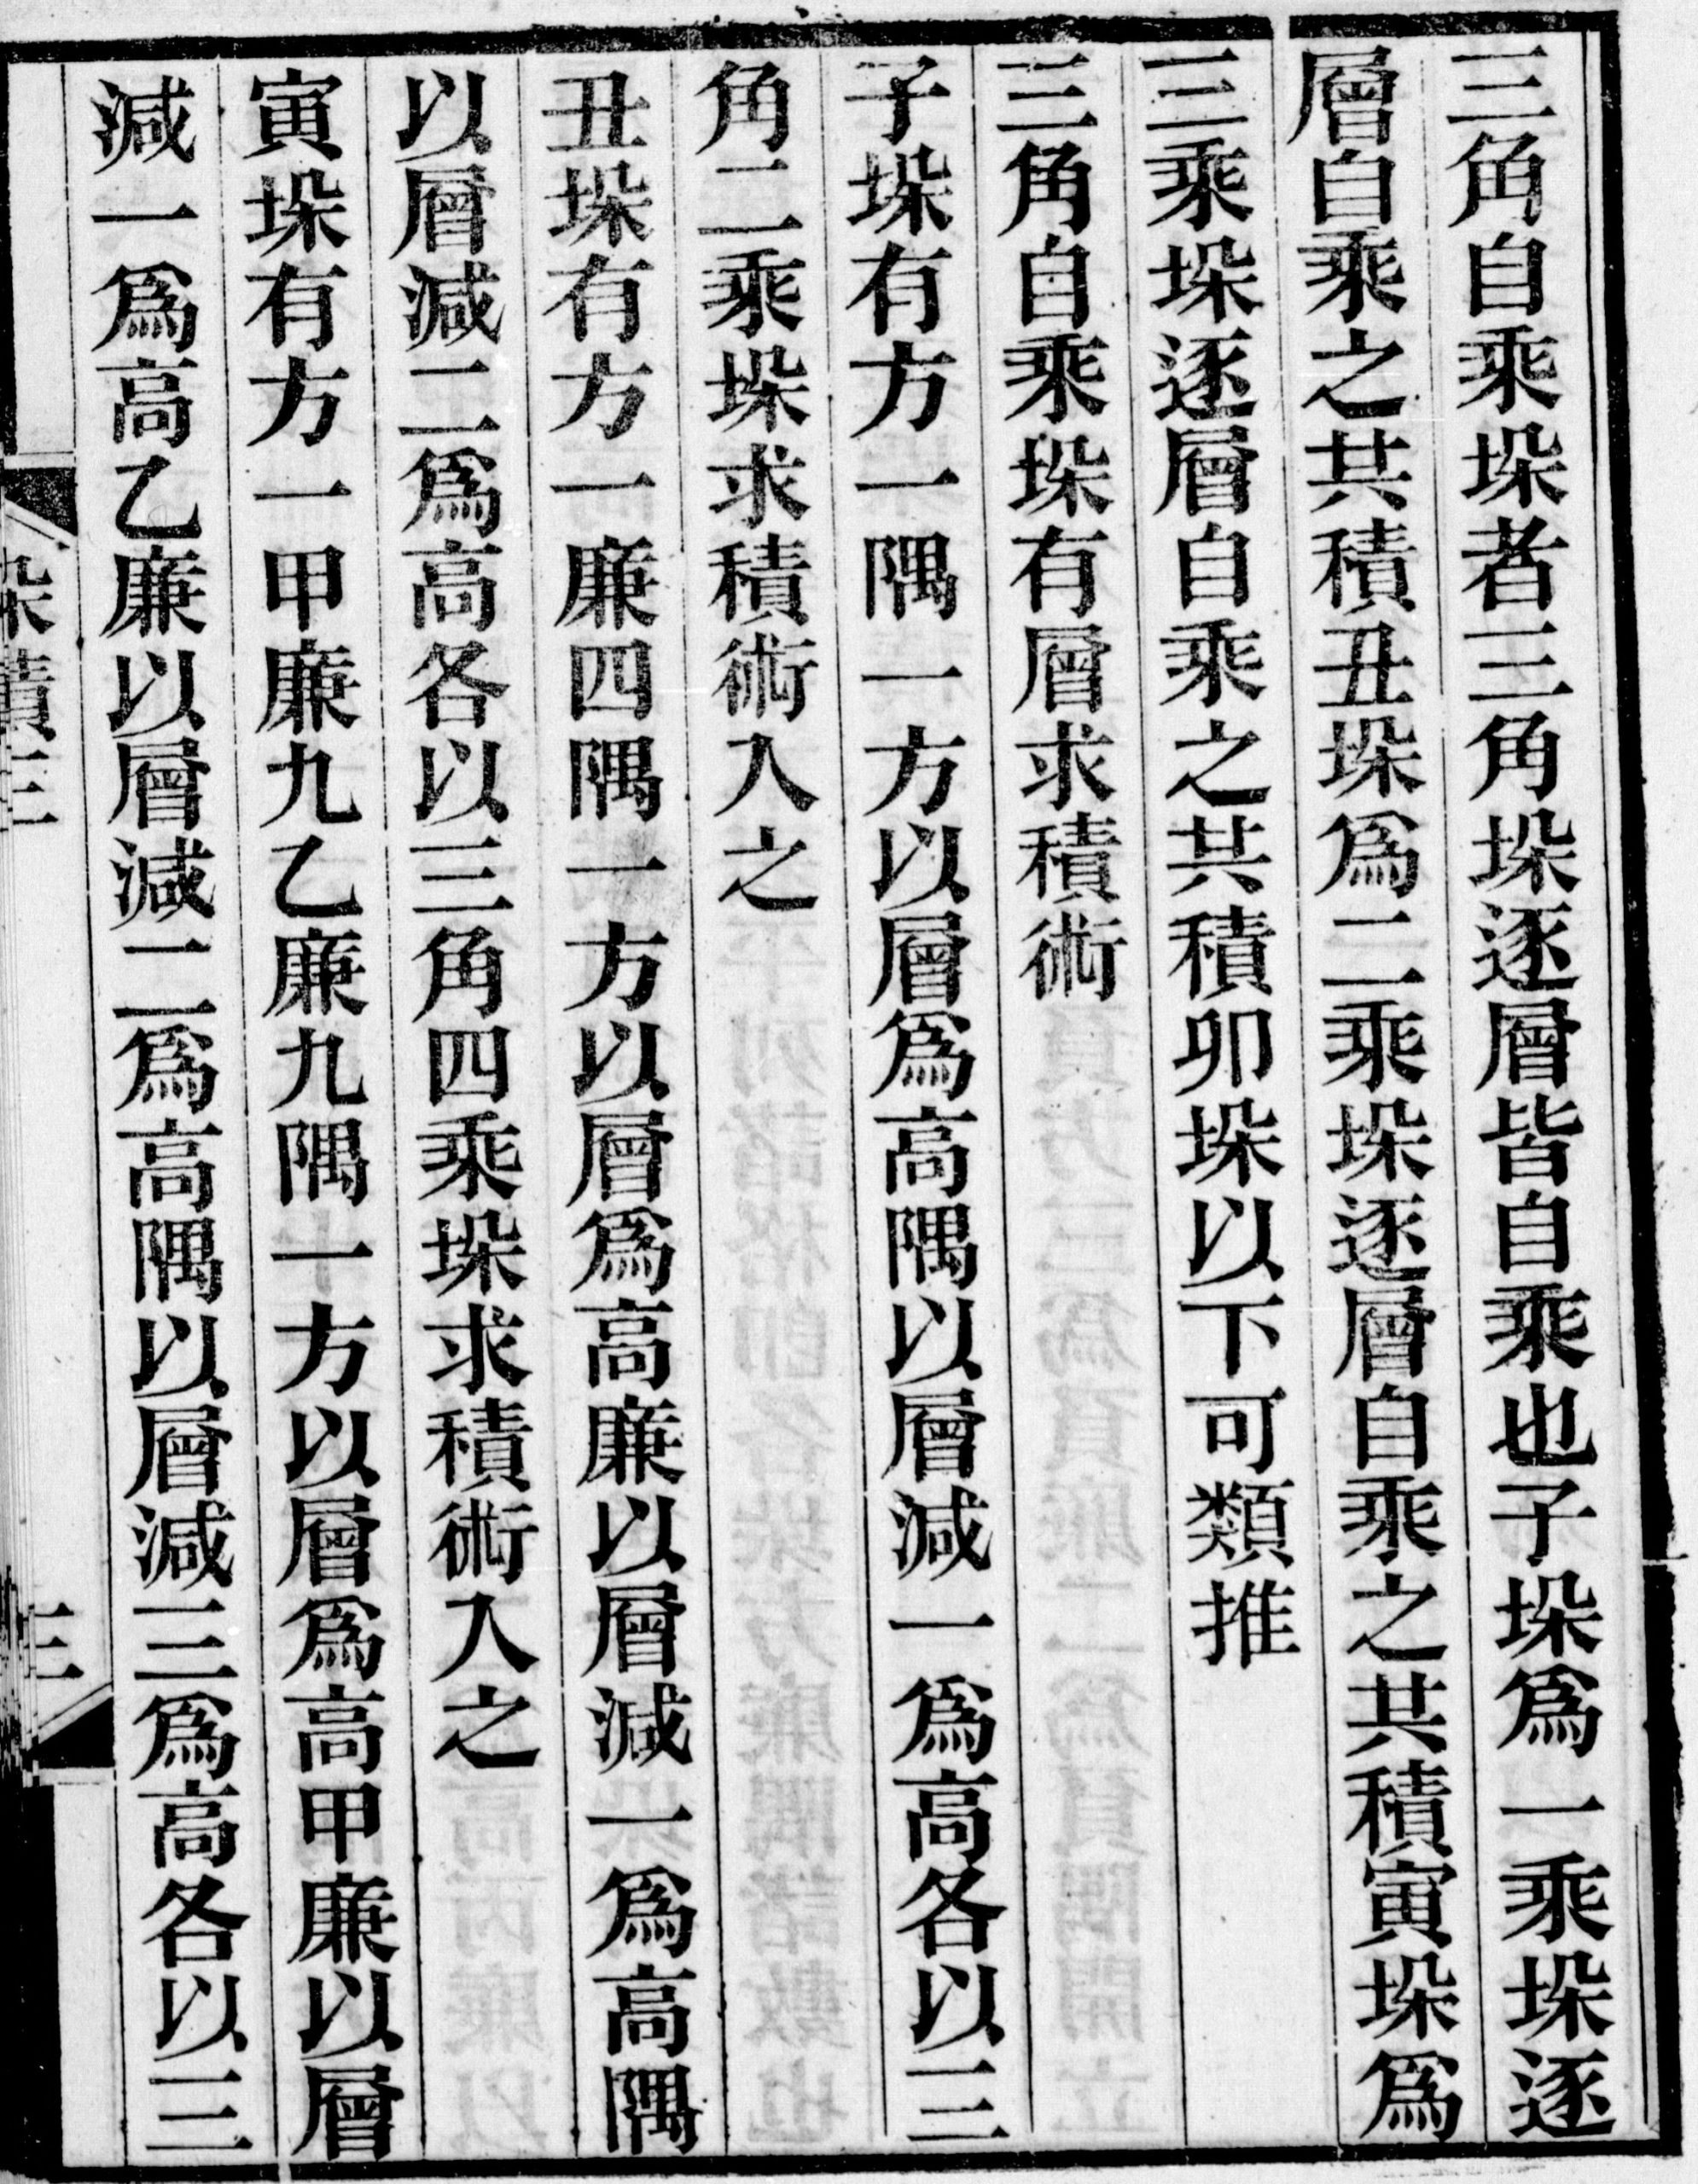 三角自乘垛者三角垛逐層皆自乘也子垛爲一乘垛逐
層自乘之共積丑垛爲二乘垛逐層自乘之共積寅垛爲
三乘垛逐層自乘之共積卯垛以下可類推
三角自乘垛有層求積術
子垛有方一隅一方以層爲高隅以層減一爲高各以三
角二乘垛求積術入之
丑垛有方一廉四隅一方以層爲高廉以層減一爲高隅
以層減二爲高各以三角四乘垛求積術入之
寅垛有方一甲廉九乙廉九隅一方以層爲高甲廉以層
減一爲高乙廉以層減二爲高隅以層減三爲高各以三
垛積三
三